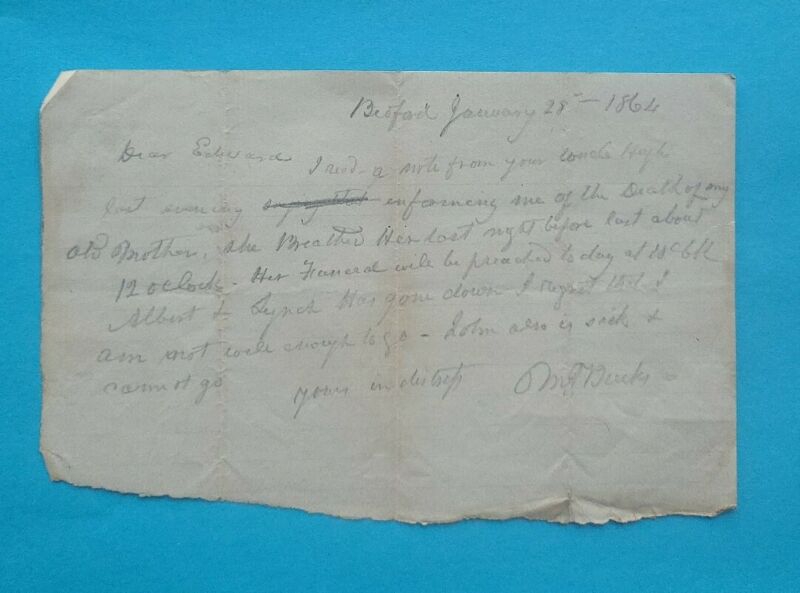 Bedford January 28th - 1864
Dear Edward
I recd a note from your uncle Hugh
last evening informing me of the Death of my
old Mother, She Breathed Her last night before last about
12 oclock - Her Funeral will be preached to day at
Albert & Lynch Has gone down I regret that I
am not well enough to go - John also is sick &
cannot go
yours in distress